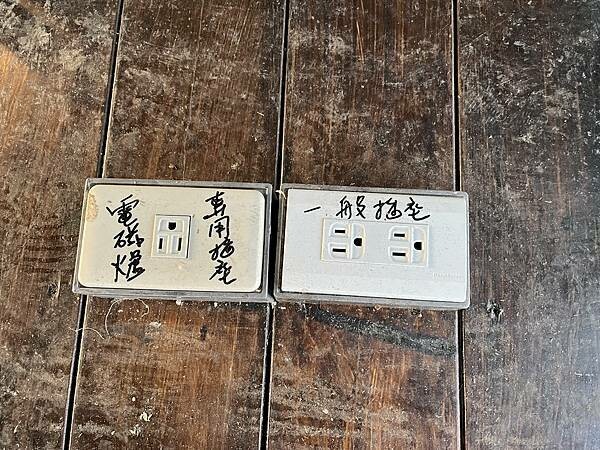 電磁爐
專用插座
一般插座